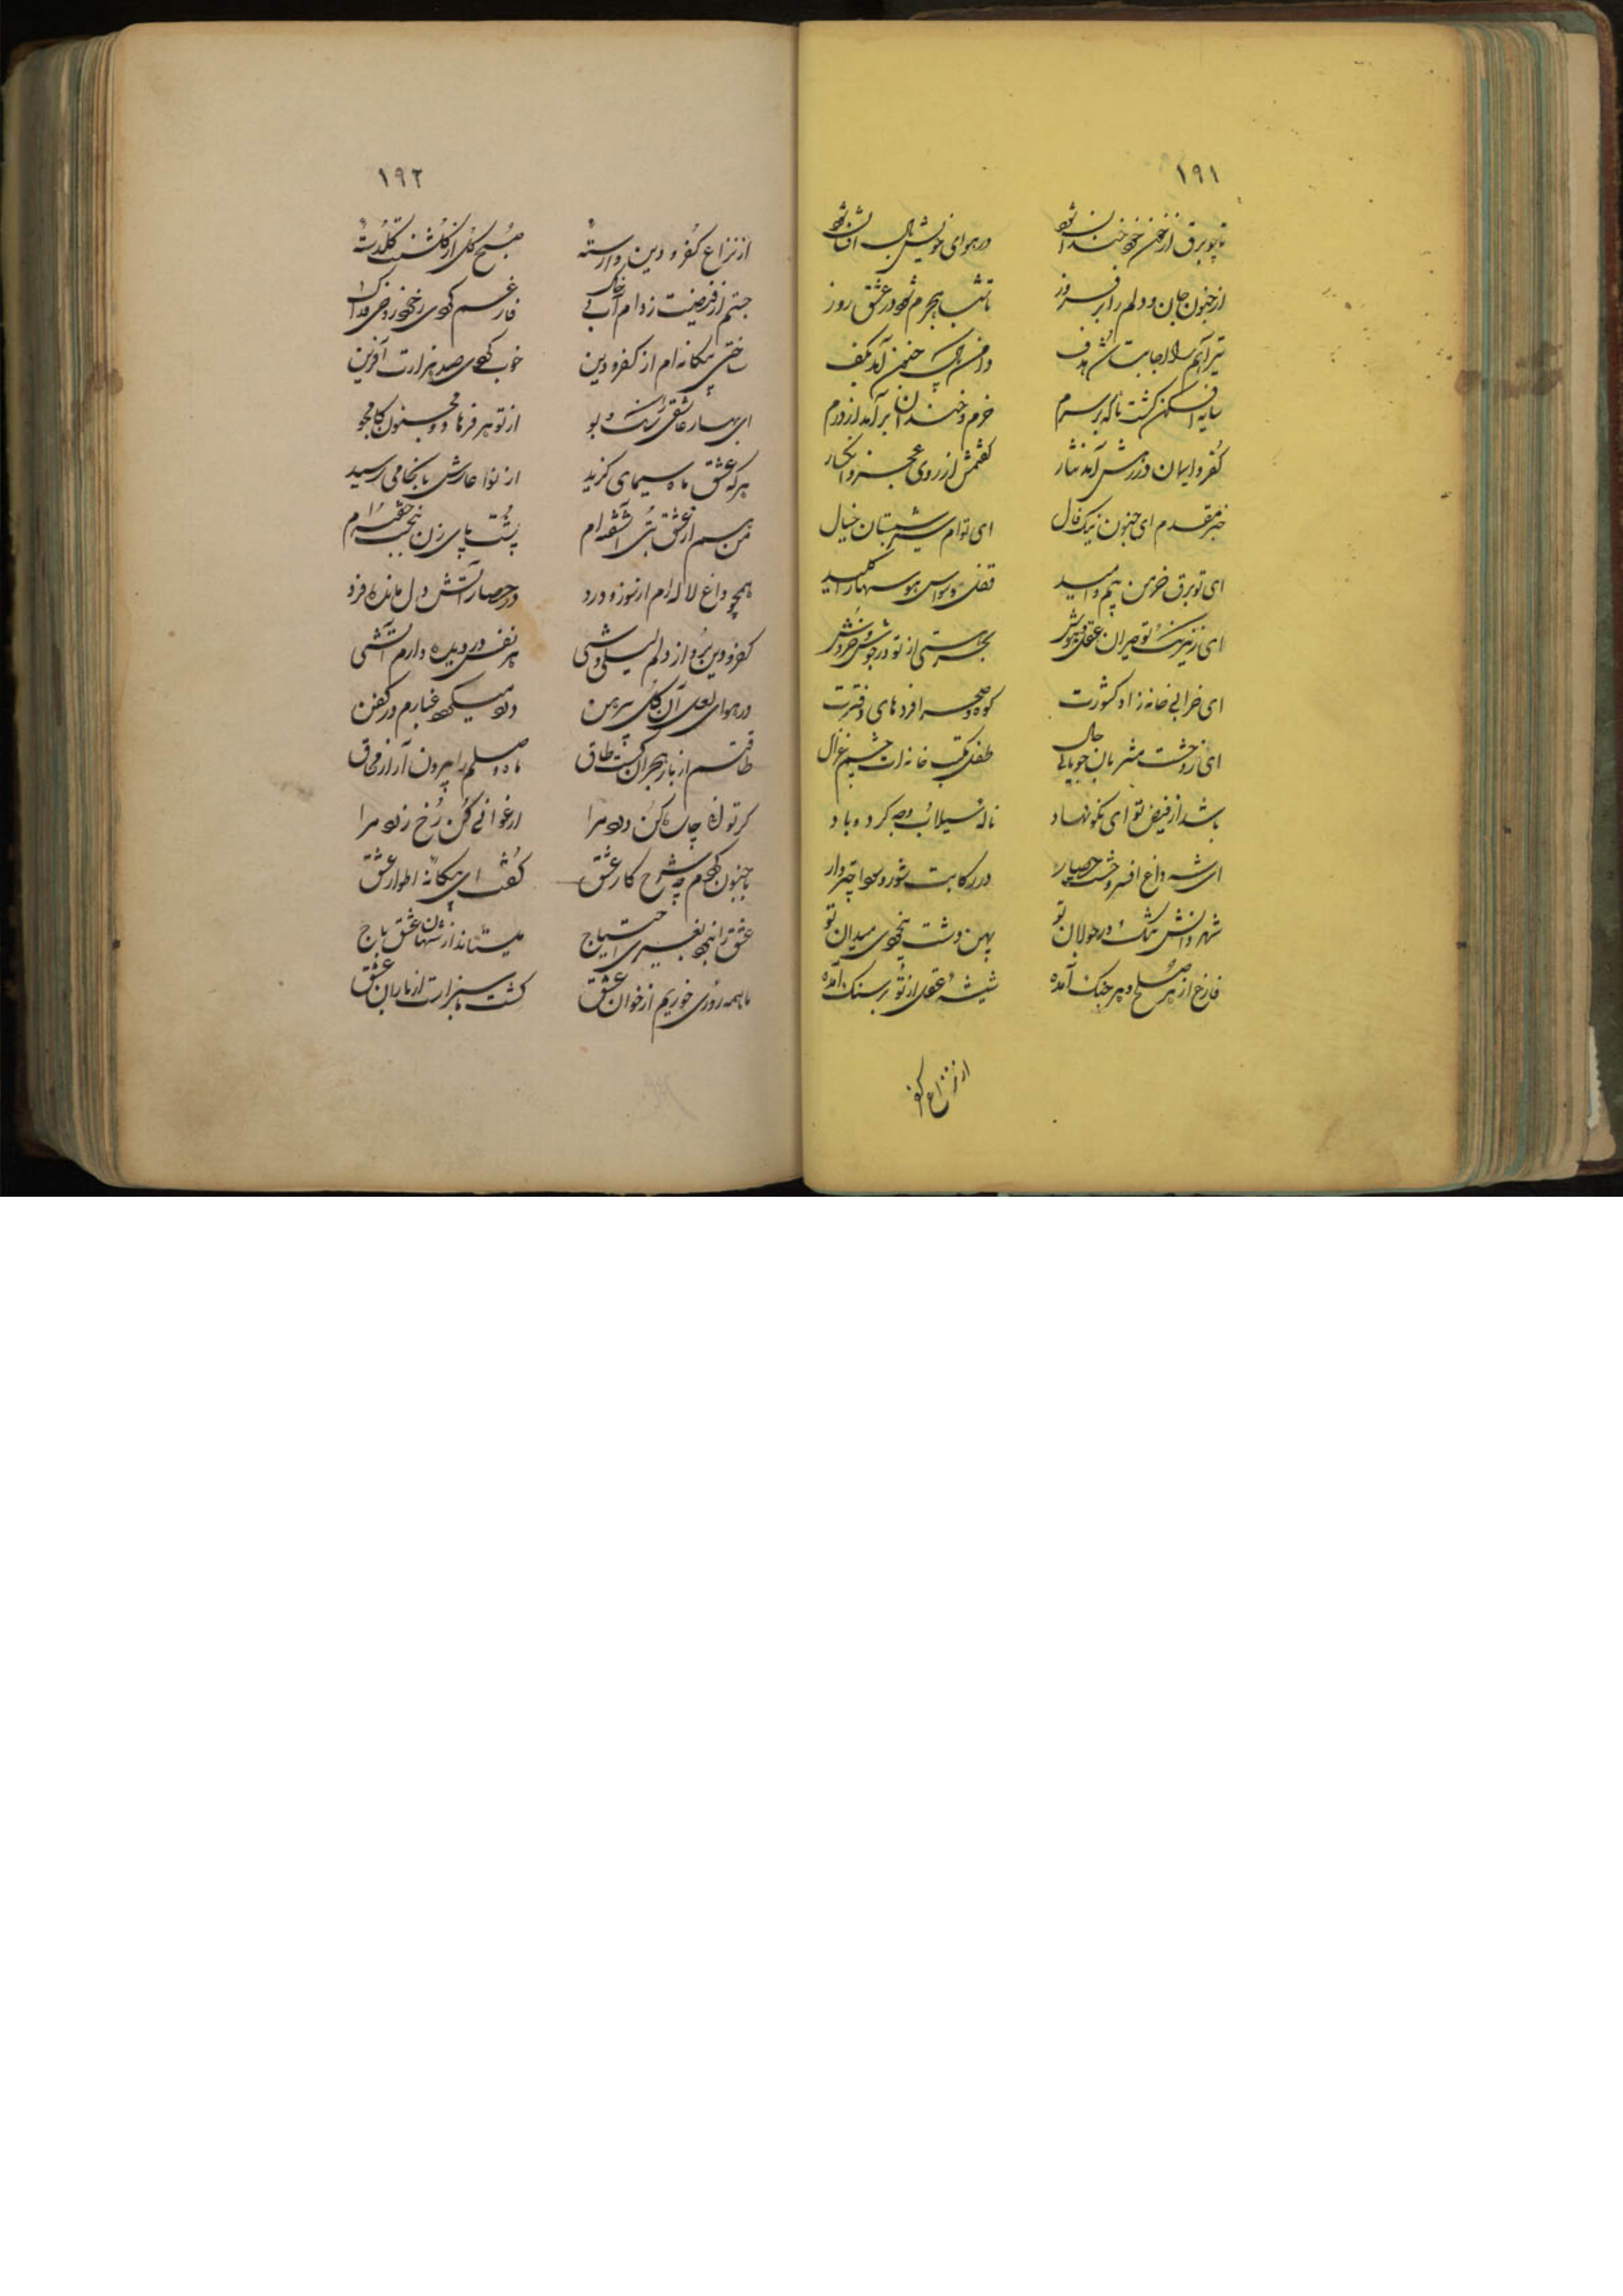 ۱۹۱
تا چو برق از خرمن خود خندان شود در هوای خویش بال افشان شود
از جنون جان و دلم را برفروز تا شب هجرم شود در عشق روز
تیر آهم را اجابت شد هدف دامن پاک جنون آمد بکف
سایه افکن گشت ناگه بر سرم خرم و خندان برآمد از درم
کفر و ایمان در رهش آمد نثار گفتمش از روی عجز و انکسار
خیر مقدم ای جنون نیک فال ای تو ام شمع شبستان خیال
ای تو برق خرمن بیم و امید قفل وسواس هوسها را کلید
ای ز نیرنگ تو حیران عقل و هوش بحر هستی از تو در جوش و خروش
ای خرابی خانه زاد کشورت کوه و صحرا فردهای دفترت
ای ز وحشت مشربان جویای حال طفل مکتب خانه ات چشم غزال
باشد از فیض تو ای نکو نهاد ناله سیلاب وجد گرد و باد
ای شه داغ افسر وحشت حصار در رکابت شور و سودا چتردار
شهر دانش تنگ در جولان تو پهن دشت بیخودی میدان تو
فارغ از هر صلح و هر جنگ آمده شیشه عقل از تو بر سنگ آمده
از نزاع کفر
۱۹۲
از نزاع کفر و دین وارسته صبح کل از گلشنت گلدسته
جستم از فیضت ز دام آب و خاک فارغم کردی ز خود روحی فداک
ساختی بیگانه ام از کفر و دین خوب کردی صد هزارت آفرین
ای بهار عاشقی را رنگ و بو از تو هر فرهاد و مجنون کامجو
هر که عشق ماه سیمای گزید از نوازشهایش با کامی رسید
من هم از عشق بتی آشفته ام پشت پای زن ببخت خفته ام
همچو داغ لاله ام از سوز و درد در حصار آتش دل مانده فرد
کفر و دین برد از دلم لیلی وشی هر نفس در دیده دارم آتشی
در هوای لعل آن گل پیرهن دل میکده غبارم در کفن
طاقتم از بار هجران گشت طاق ماه وصلم را برون آر از محاق
گر توانی چاره کن درد مرا ارغوانی کن رخ زرد مرا
با جنون کردم چو شرح کار عشق گفت ای بیگانه اطوار عشق
عشق را نبود بغیری احتیاج میستاند از شهان عشق باج
ما همه روزی خوریم از خوان عشق کشت ما سبز است از باران عشق